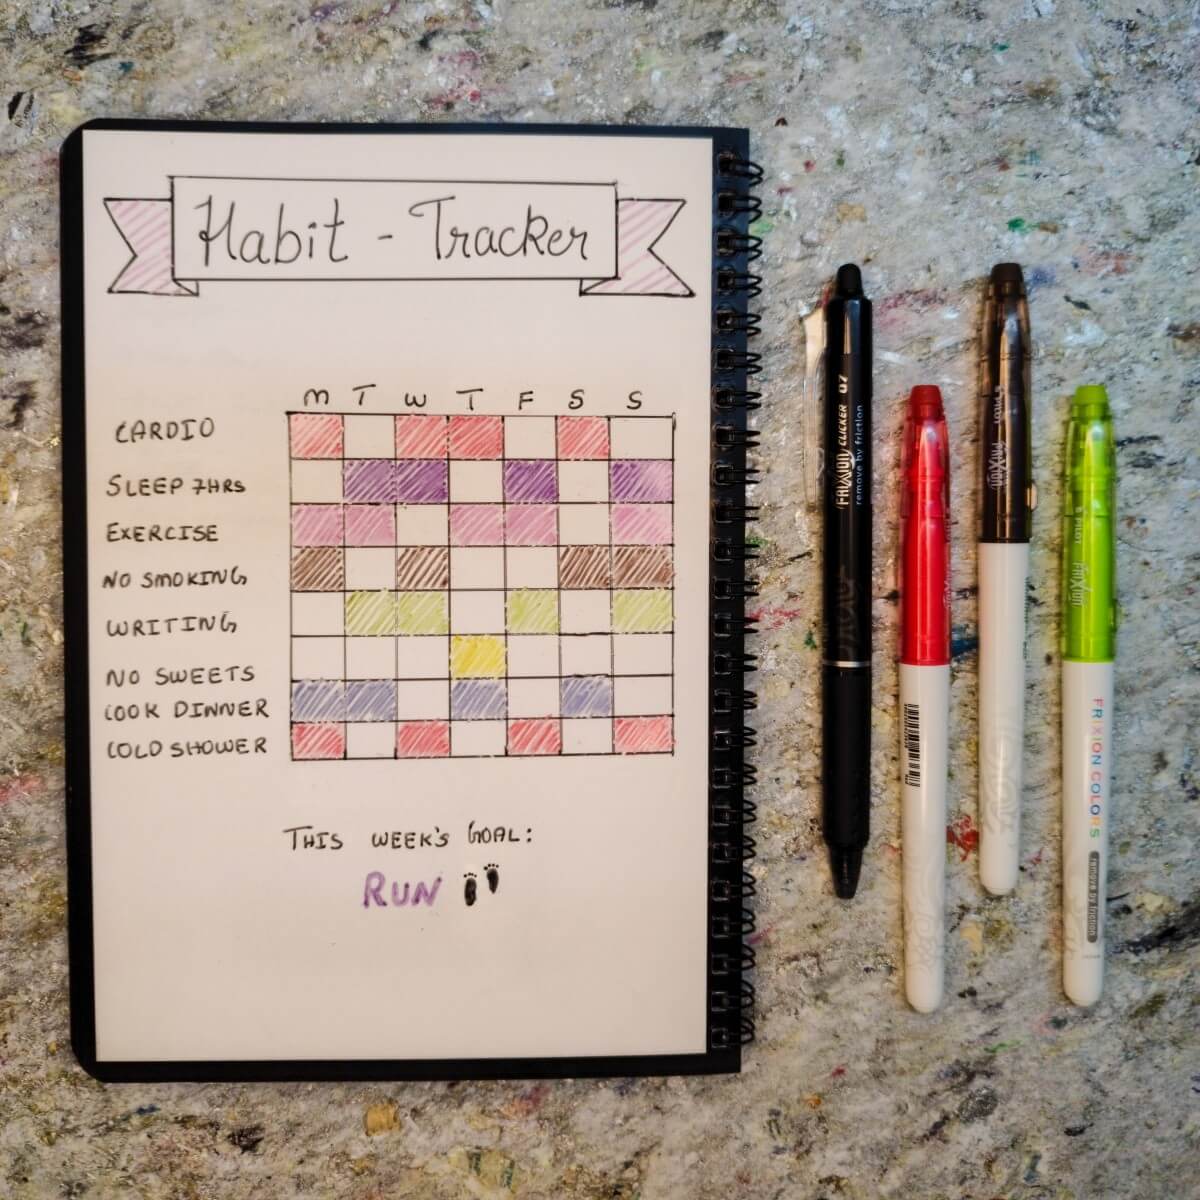 Habit - Tracker
M T W T F S S
CARDIO
SLEEP 7HRS
EXERCISE
NO SMOKING
WRITING
NO SWEETS
COOK DINNER
COLD SHOWER
THIS WEEK'S GOAL:
RUN
FRIXION CLICKER 07
remove by friction
FRIXION
PILOT
FRIXION
PILOT
FRIXION
FRIXION COLORS
remove by friction